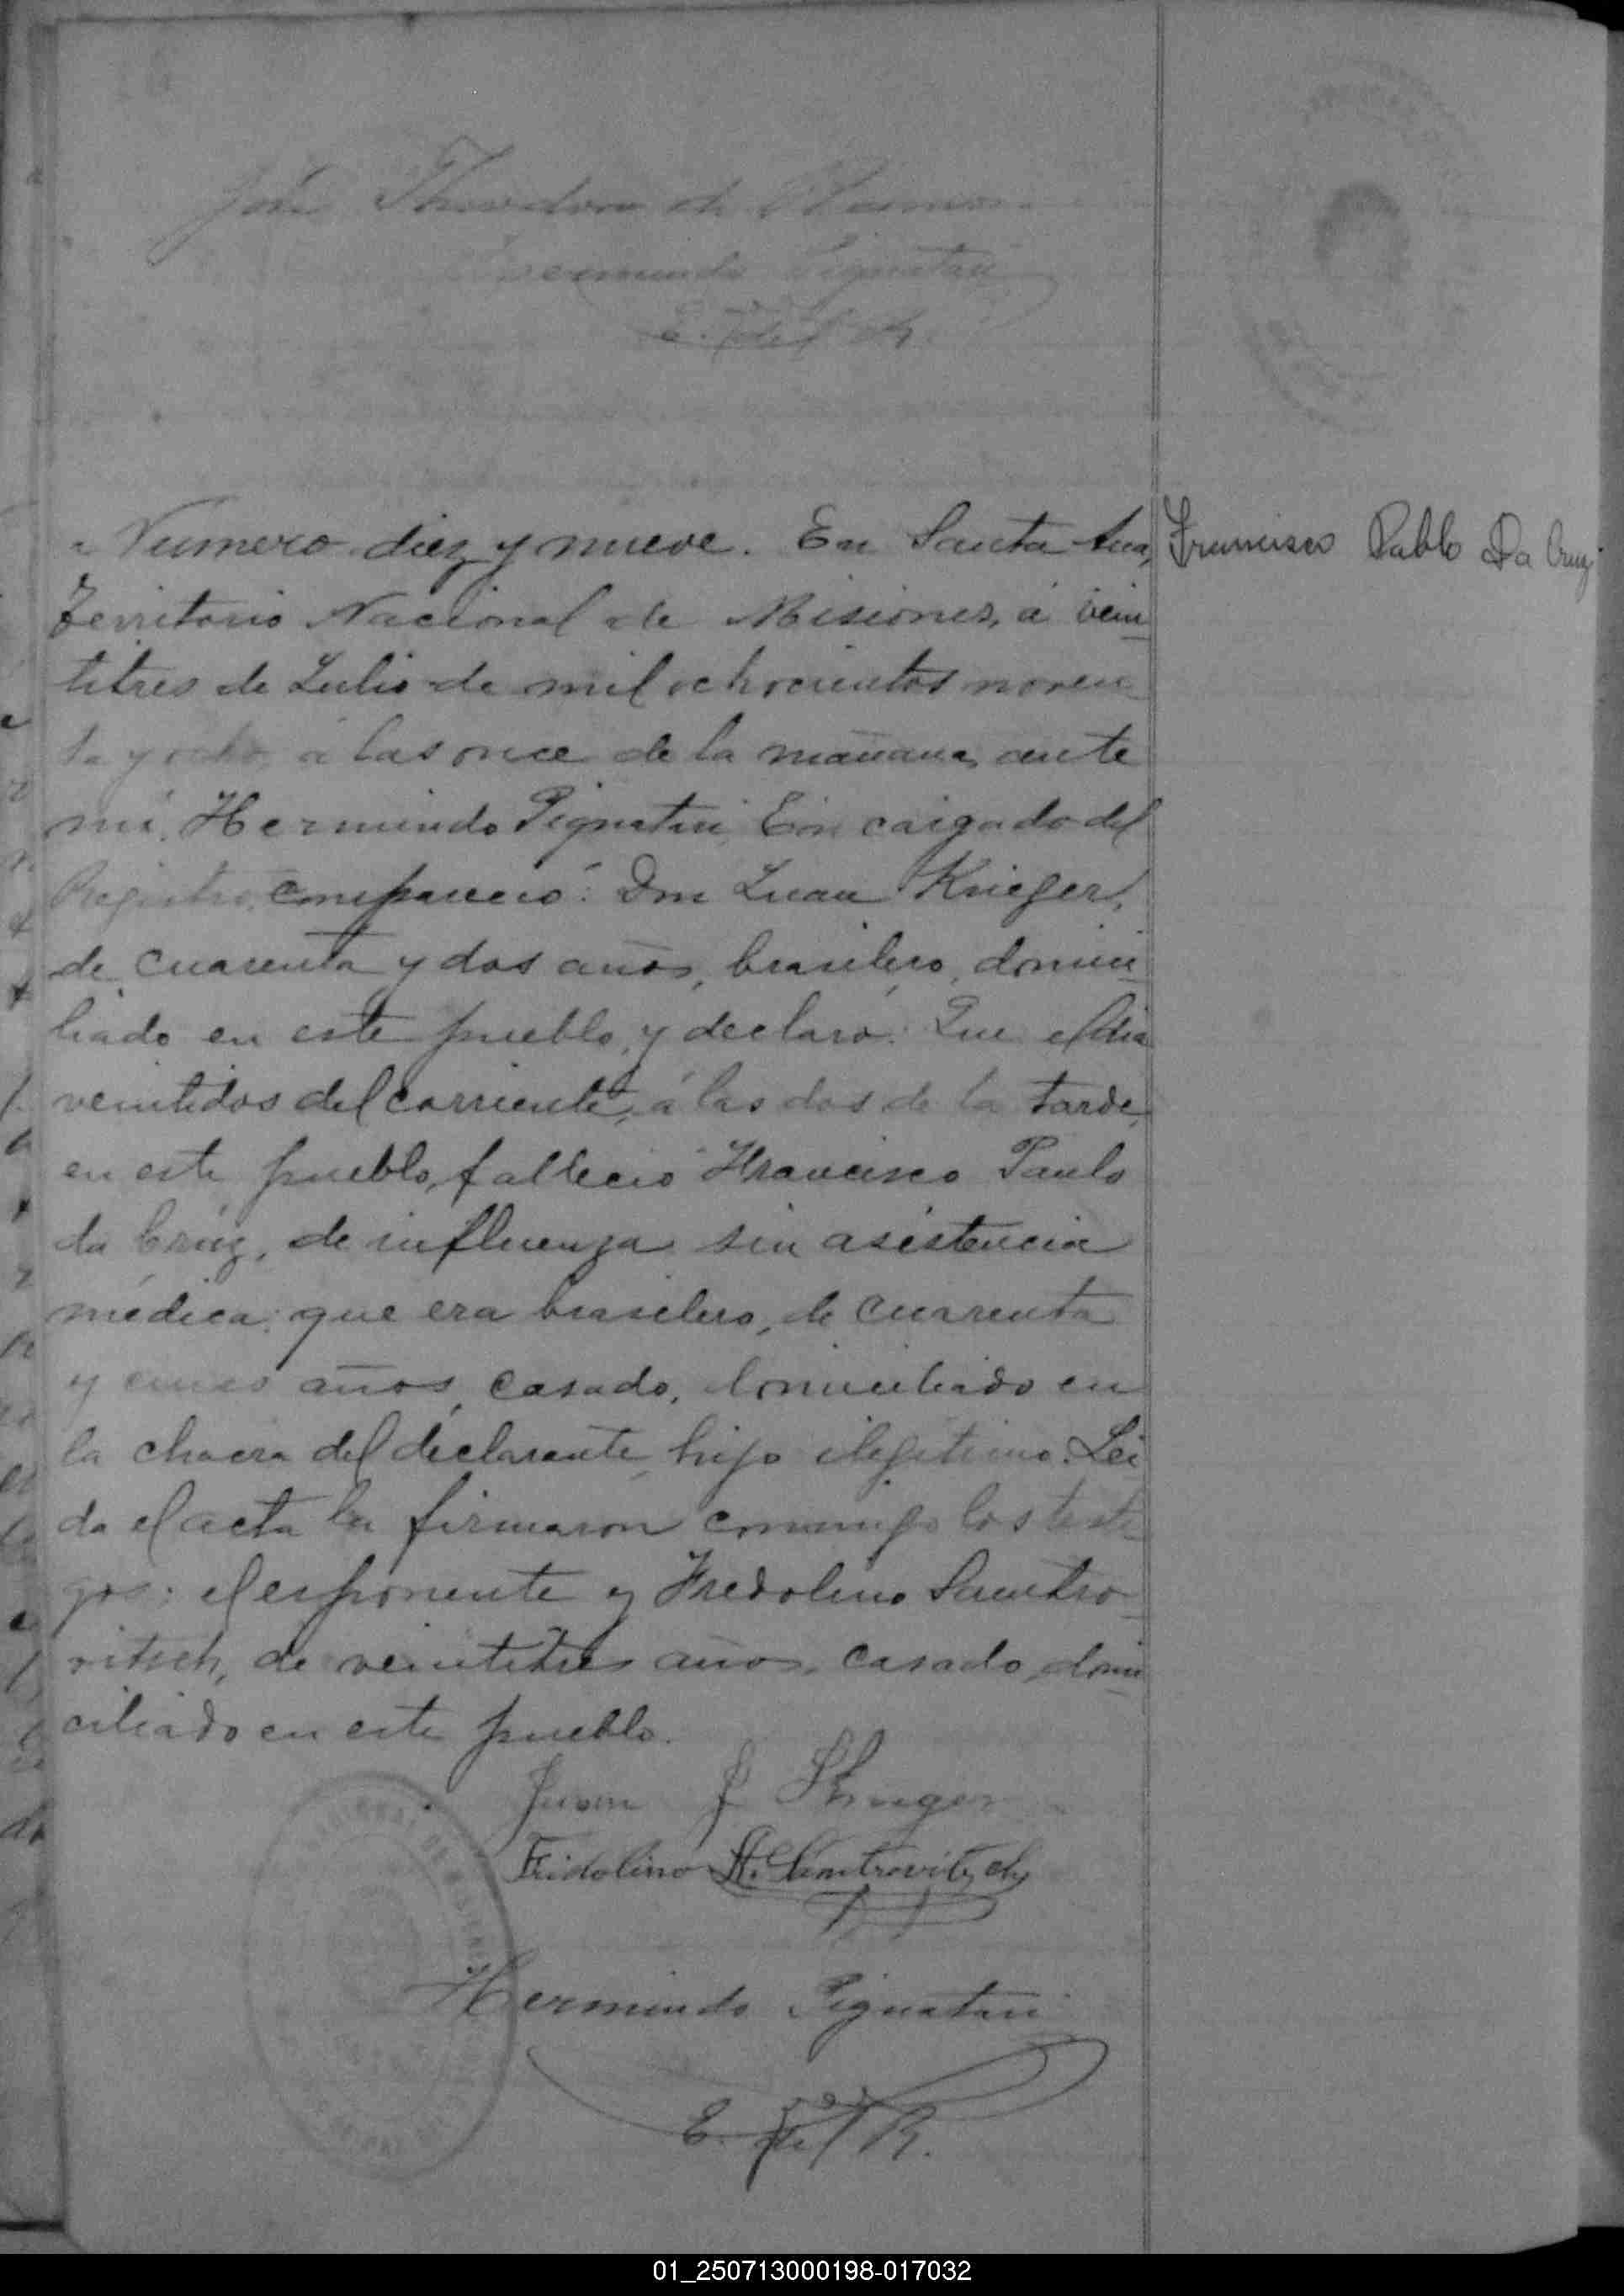 José Theodoro de
Hermindo Pignatari
E. del R.
Numero diez y nueve. En Santa Ana,
Francisco Pablo Da Cruz
Territorio Nacional de Misiones, á vein
titres de Julio de mil ochocientos noven
ta y ocho, á las once de la mañana, ante
mi, Hermindo Pignatari, Encargado del
Registro, compareció: Don Juan Krieger,
de cuarenta y dos años, brasilero, domici
liado en este pueblo, y declaró: Que el dia
veintidos del corriente, á las dos de la tarde,
en este pueblo, falleció Francisco Paulo
da Crúz, de influenza sin asistencia
médica: que era brasilero, de cuarenta
y cinco años, casado, domiciliado en
la chacra del declarante, hijo ilegitimo. Lei
da el acta la firmaron conmigo los testi
gos: el esponente y Fredolino Samtro
vitsch, de veintitres años, casado, domi
ciliado en este pueblo.
Juan
Fridolino
Hermindo Pignatari
E. del R.
01_250713000198-017032